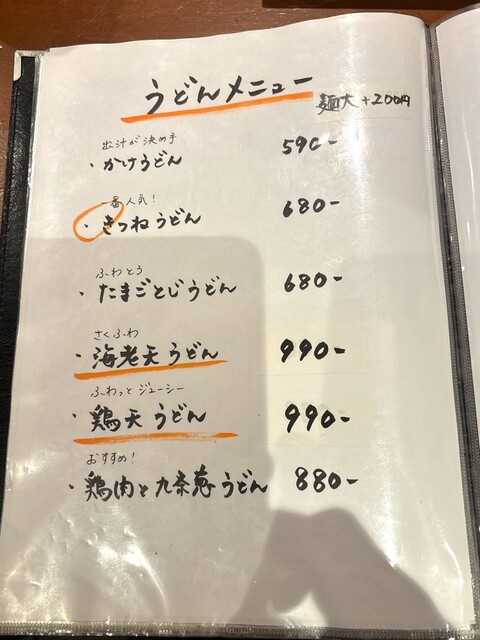 うどんメニュー
麺大 +200円
出汁が決め手
・かけうどん 590-
一番人気!
・きつねうどん 680-
ふわとろ
・たまごとじうどん 680-
さくふわ
・海老天うどん 990-
ふわっとジューシー
・鶏天うどん 990-
おすすめ!
・鶏肉と九条葱うどん 880-